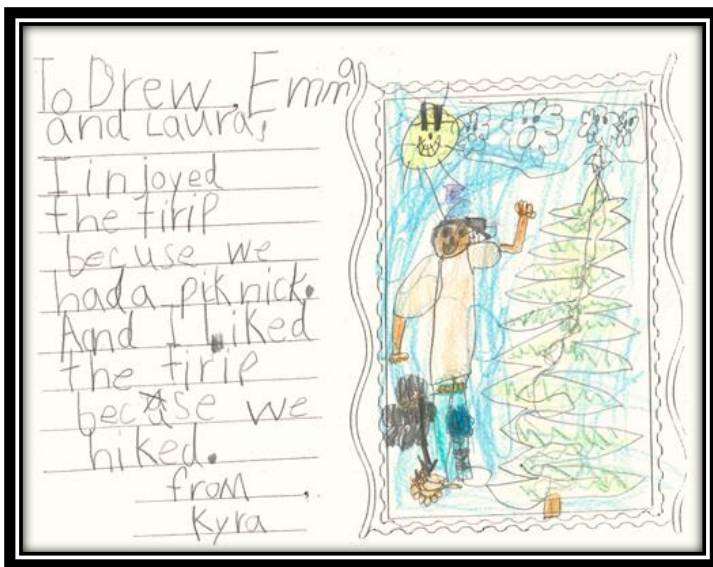 To Drew, Emma
and Laura,
I injoyed
the tirip
becuse we
had a piknick.
Aand I liked
the tirip
becase we
hiked.
from
Kyra